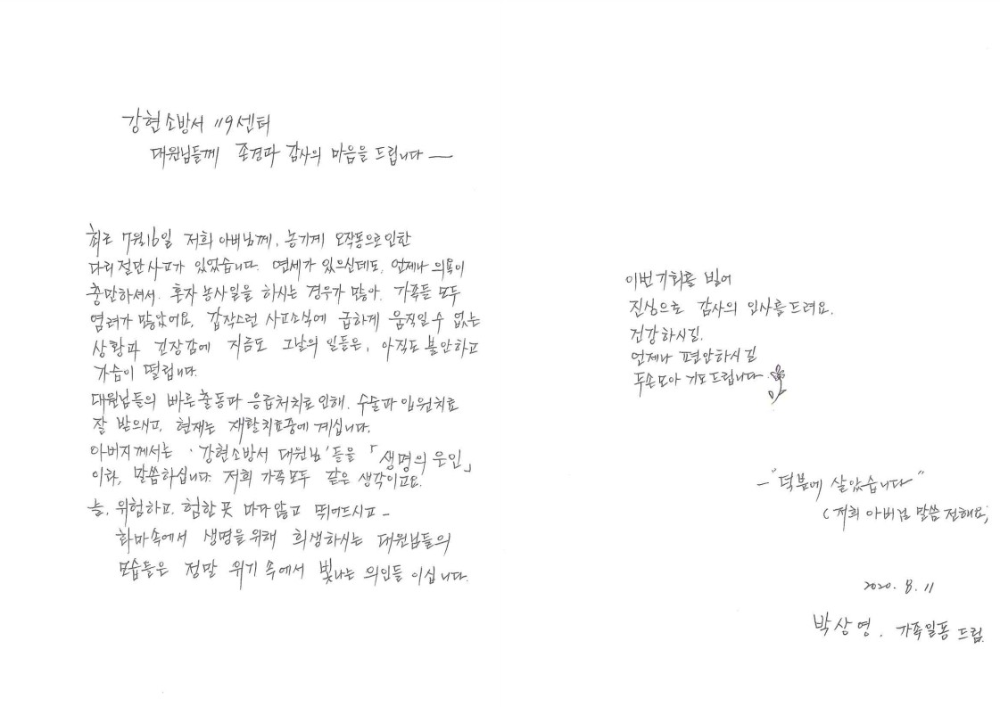 강현소방서 119센터
대원님들께 존경과 감사의 마음을 드립니다 —
최근 7월16일 저희 아버님께, 농기계 오작동으로 인한
다리절단사고가 있었습니다. 연세가 있으신데도, 언제나 의욕이
충만하셔서, 혼자 농사일을 하시는 경우가 많아, 가족들 모두
염려가 많았어요. 갑작스런 사고소식에 급하게 움직일 수 없는
상황과 긴장감에 지금도 그날의 일들은, 아직도 불안하고
가슴이 떨립니다.
대원님들의 빠른 출동과 응급처치로 인해, 수술과 입원치료
잘 받으시고, 현재는 재활치료중에 계십니다.
아버지께서는 '강현소방서 대원님'들을 「생명의 은인」
이라, 말씀하십니다. 저희 가족모두 같은 생각이고요.
늘, 위험하고, 험한 곳 마다않고 뛰어드시고 –
화마속에서 생명을 위해 희생하시는 대원님들의
모습들은 정말 위기 속에서 빛나는 의인들 이십니다.
이번기회를 빌어
진심으로 감사의 인사를 드려요.
건강하시길,
언제나 평안하시길
두손모아 기도드립니다.
— "덕분에 살았습니다"
(저희 아버님 말씀 전해요)
2020. 8. 11
박상영, 가족일동 드림.